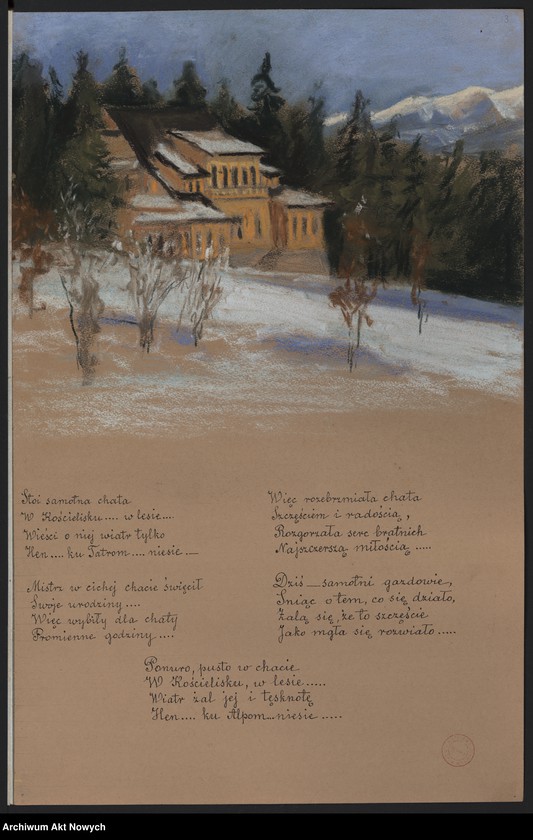 Stoi samotna chata
W Kościelisku.... w lesie....
Wieści o niej wiatr tylko
Hen.... ku Tatrom.... niesie —
Mistrz w cichej chacie święcił
Swoje urodziny....
Więc wybiły dla chaty
Promienne godziny....
Więc rozebrzmiała chata
Szczęściem i radością,
Rozgorzała serc bratnich
Najszczerszą miłością.....
Dziś — samotni gazdowie,
Śniąc o tem, co się działo,
Żalą się, że to szczęście
Jako mgła się rozwiało.....
Ponuro, pusto w chacie
W Kościelisku, w lesie.....
Wiatr żal jej i tęsknotę
Hen.... ku Alpom...niesie.....
Archiwum Akt Nowych